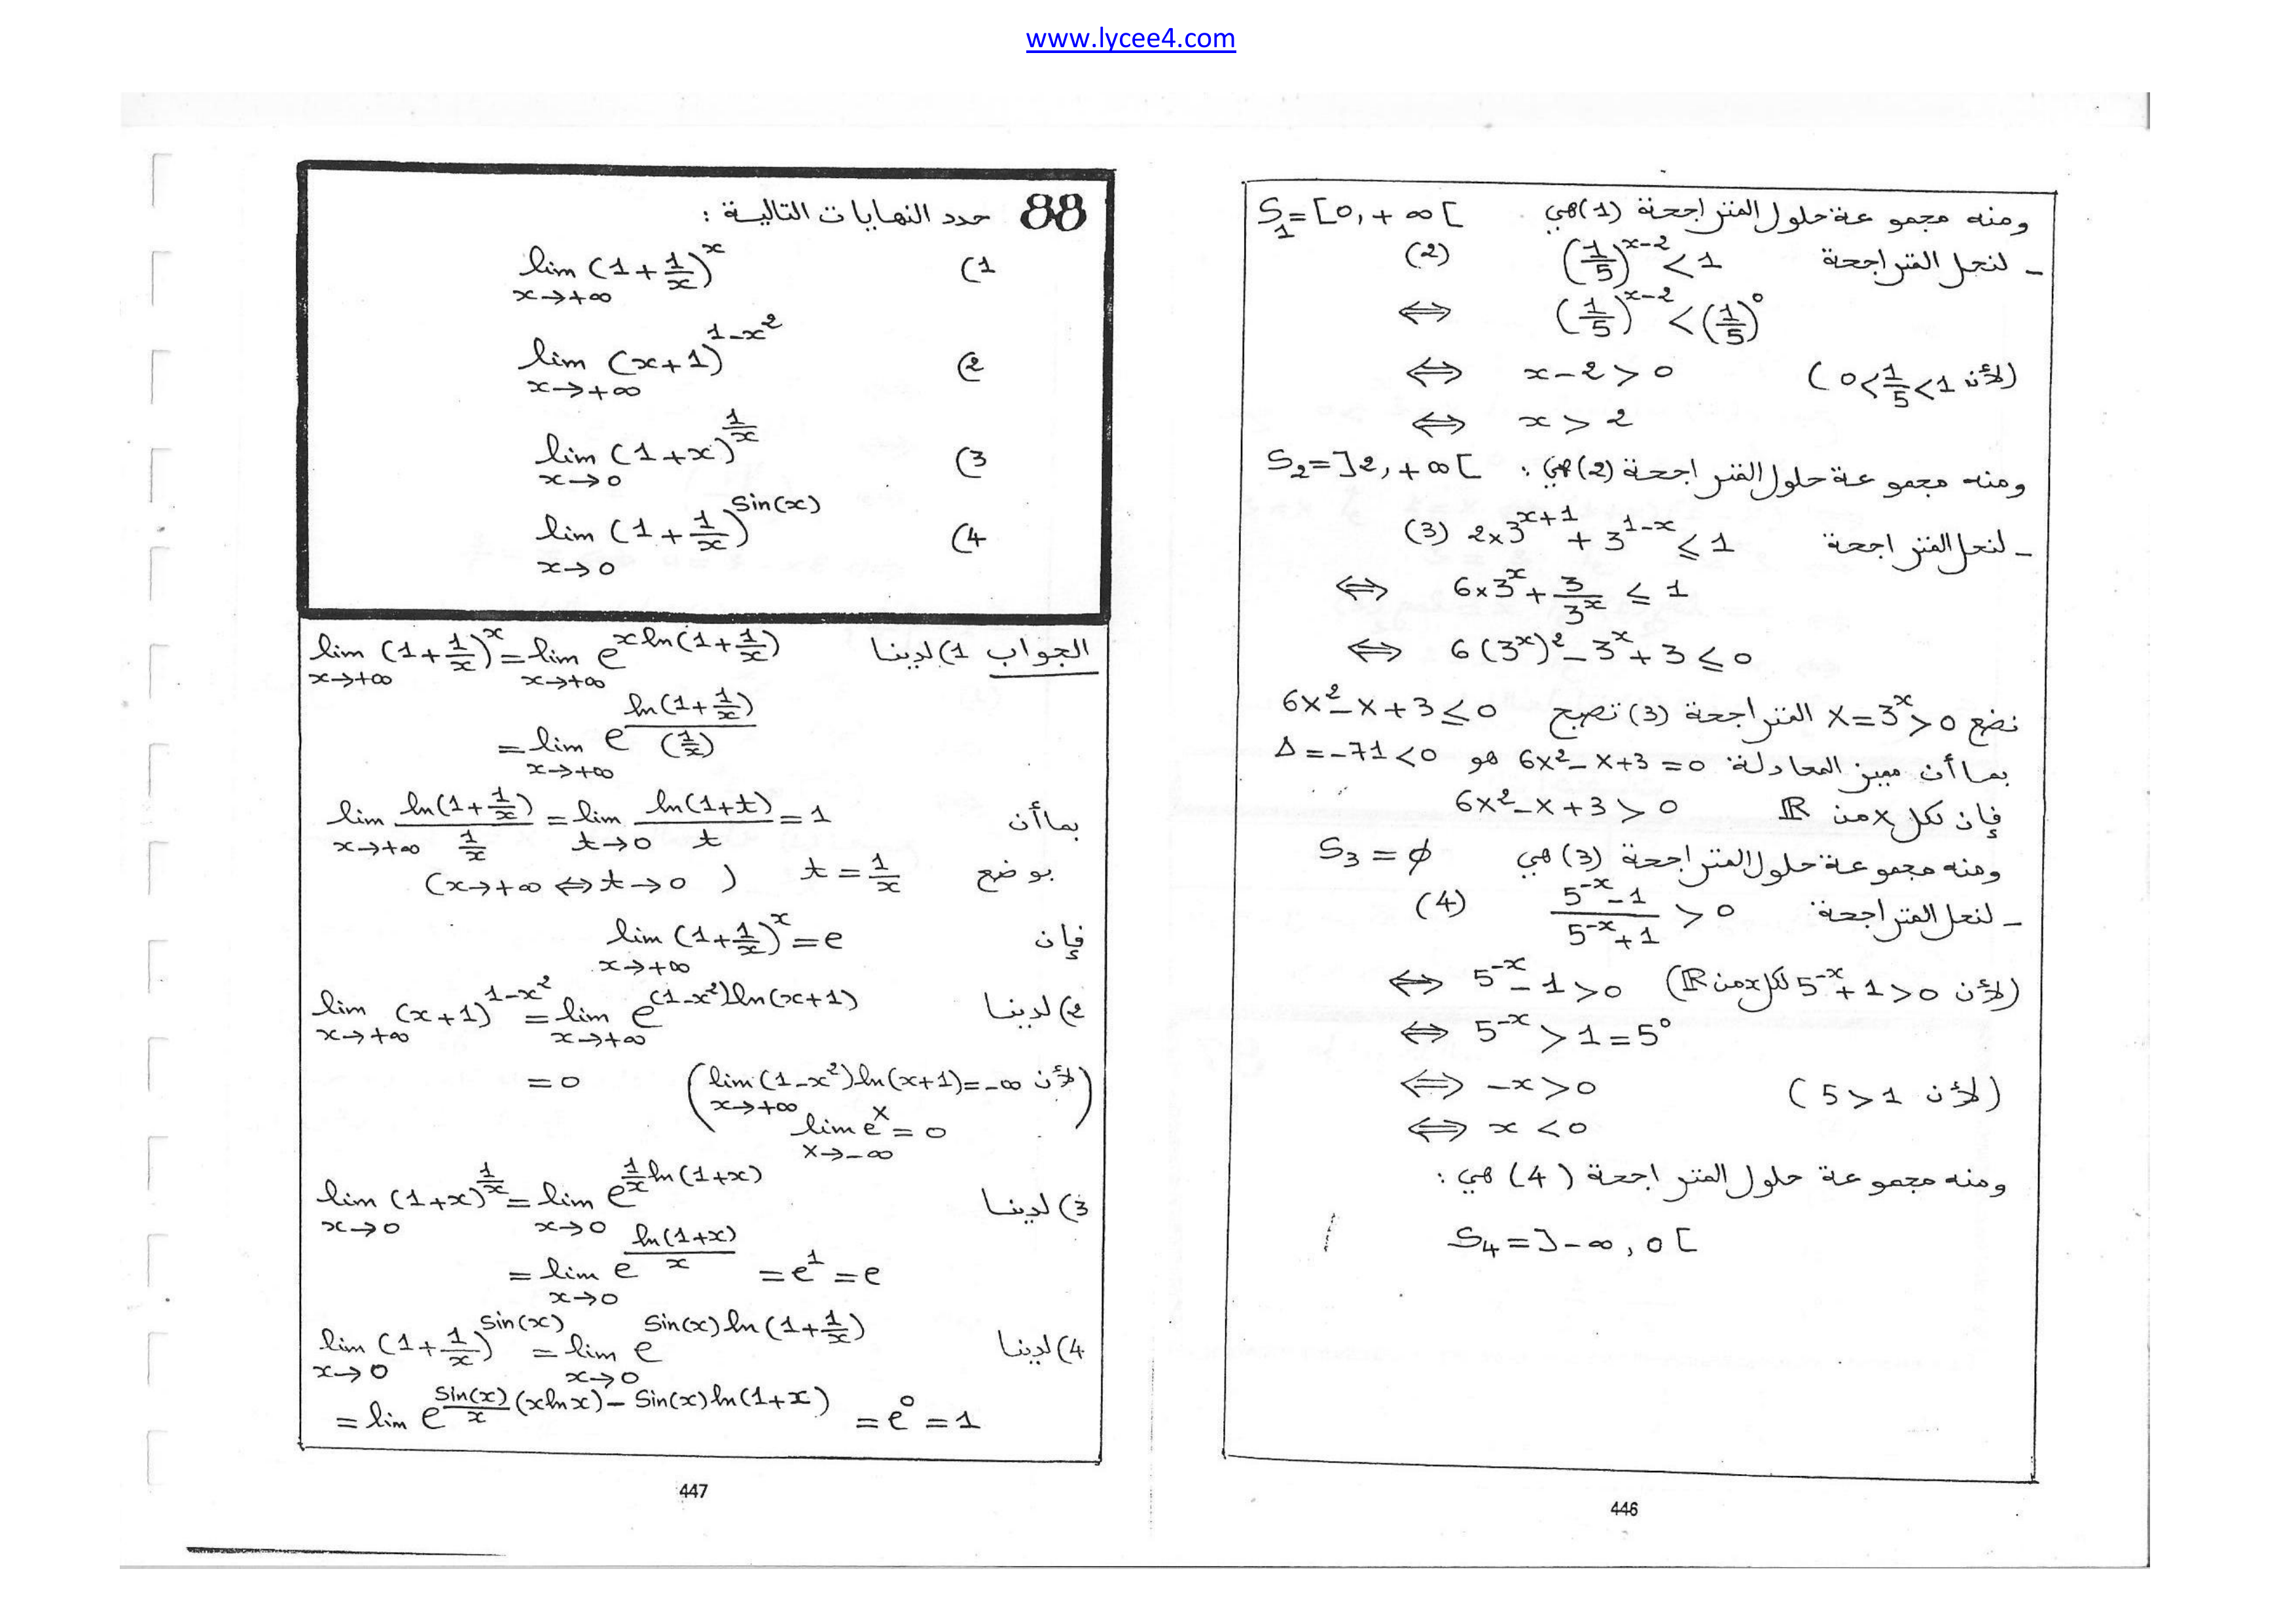 www.lycee4.com
ومنه مجموعة حلول المتراجحة (1) هي S₁=[0,+∞[
- لنحل المتراجحة (1/5)^(x-2) < 1 (2)
⇔ (1/5)^(x-2) < (1/5)^0
⇔ x-2 > 0 (لأن 0<1/5<1)
⇔ x > 2
ومنه مجموعة حلول المتراجحة (2) هي : S₂=]2,+∞[
- لنحل المتراجحة 2×3^(x+1) + 3^(1-x) ≤ 1 (3)
⇔ 6×3^x + 3/3^x ≤ 1
⇔ 6(3^x)² - 3^x + 3 ≤ 0
نضع X=3^x>0 المتراجحة (3) تصبح 6X²-X+3≤0
بما أن مميز المعادلة 6X²-X+3=0 هو Δ=-71<0
فإن لكل X من ℝ 6X²-X+3>0
ومنه مجموعة حلول المتراجحة (3) هي S₃=∅
- لنحل المتراجحة (5^(-x)-1)/(5^(-x)+1) > 0 (4)
⇔ 5^(-x)-1>0 (لأن 5^(-x)+1>0 لكل x من ℝ)
⇔ 5^(-x) > 1=5^0
⇔ -x>0 (لأن 5>1)
⇔ x<0
ومنه مجموعة حلول المتراجحة (4) هي :
S₄=]-∞,0[
446
88 حدد النهايات التالية :
1) lim_(x→+∞) (1+1/x)^x
2) lim_(x→+∞) (x+1)^(1-x²)
3) lim_(x→0) (1+x)^(1/x)
4) lim_(x→0) (1+1/x)^(sin(x))
الجواب 1) لدينا lim_(x→+∞) (1+1/x)^x = lim_(x→+∞) e^(x ln(1+1/x))
= lim_(x→+∞) e^(ln(1+1/x)/(1/x))
بما أن lim_(x→+∞) ln(1+1/x)/(1/x) = lim_(t→0) ln(1+t)/t = 1
بوضع t=1/x (x→+∞ ⇔ t→0)
فإن lim_(x→+∞) (1+1/x)^x = e
2) لدينا lim_(x→+∞) (x+1)^(1-x²) = lim_(x→+∞) e^((1-x²)ln(x+1))
=0 (لأن lim_(x→+∞) (1-x²)ln(x+1)=-∞
lim_(X→-∞) e^X = 0)
3) لدينا lim_(x→0) (1+x)^(1/x) = lim_(x→0) e^(1/x ln(1+x))
= lim_(x→0) e^(ln(1+x)/x) = e^1 = e
4) لدينا lim_(x→0) (1+1/x)^(sin(x)) = lim_(x→0) e^(sin(x)ln(1+1/x))
= lim e^(sin(x)/x (xlnx) - sin(x)ln(1+x)) = e^0 = 1
447